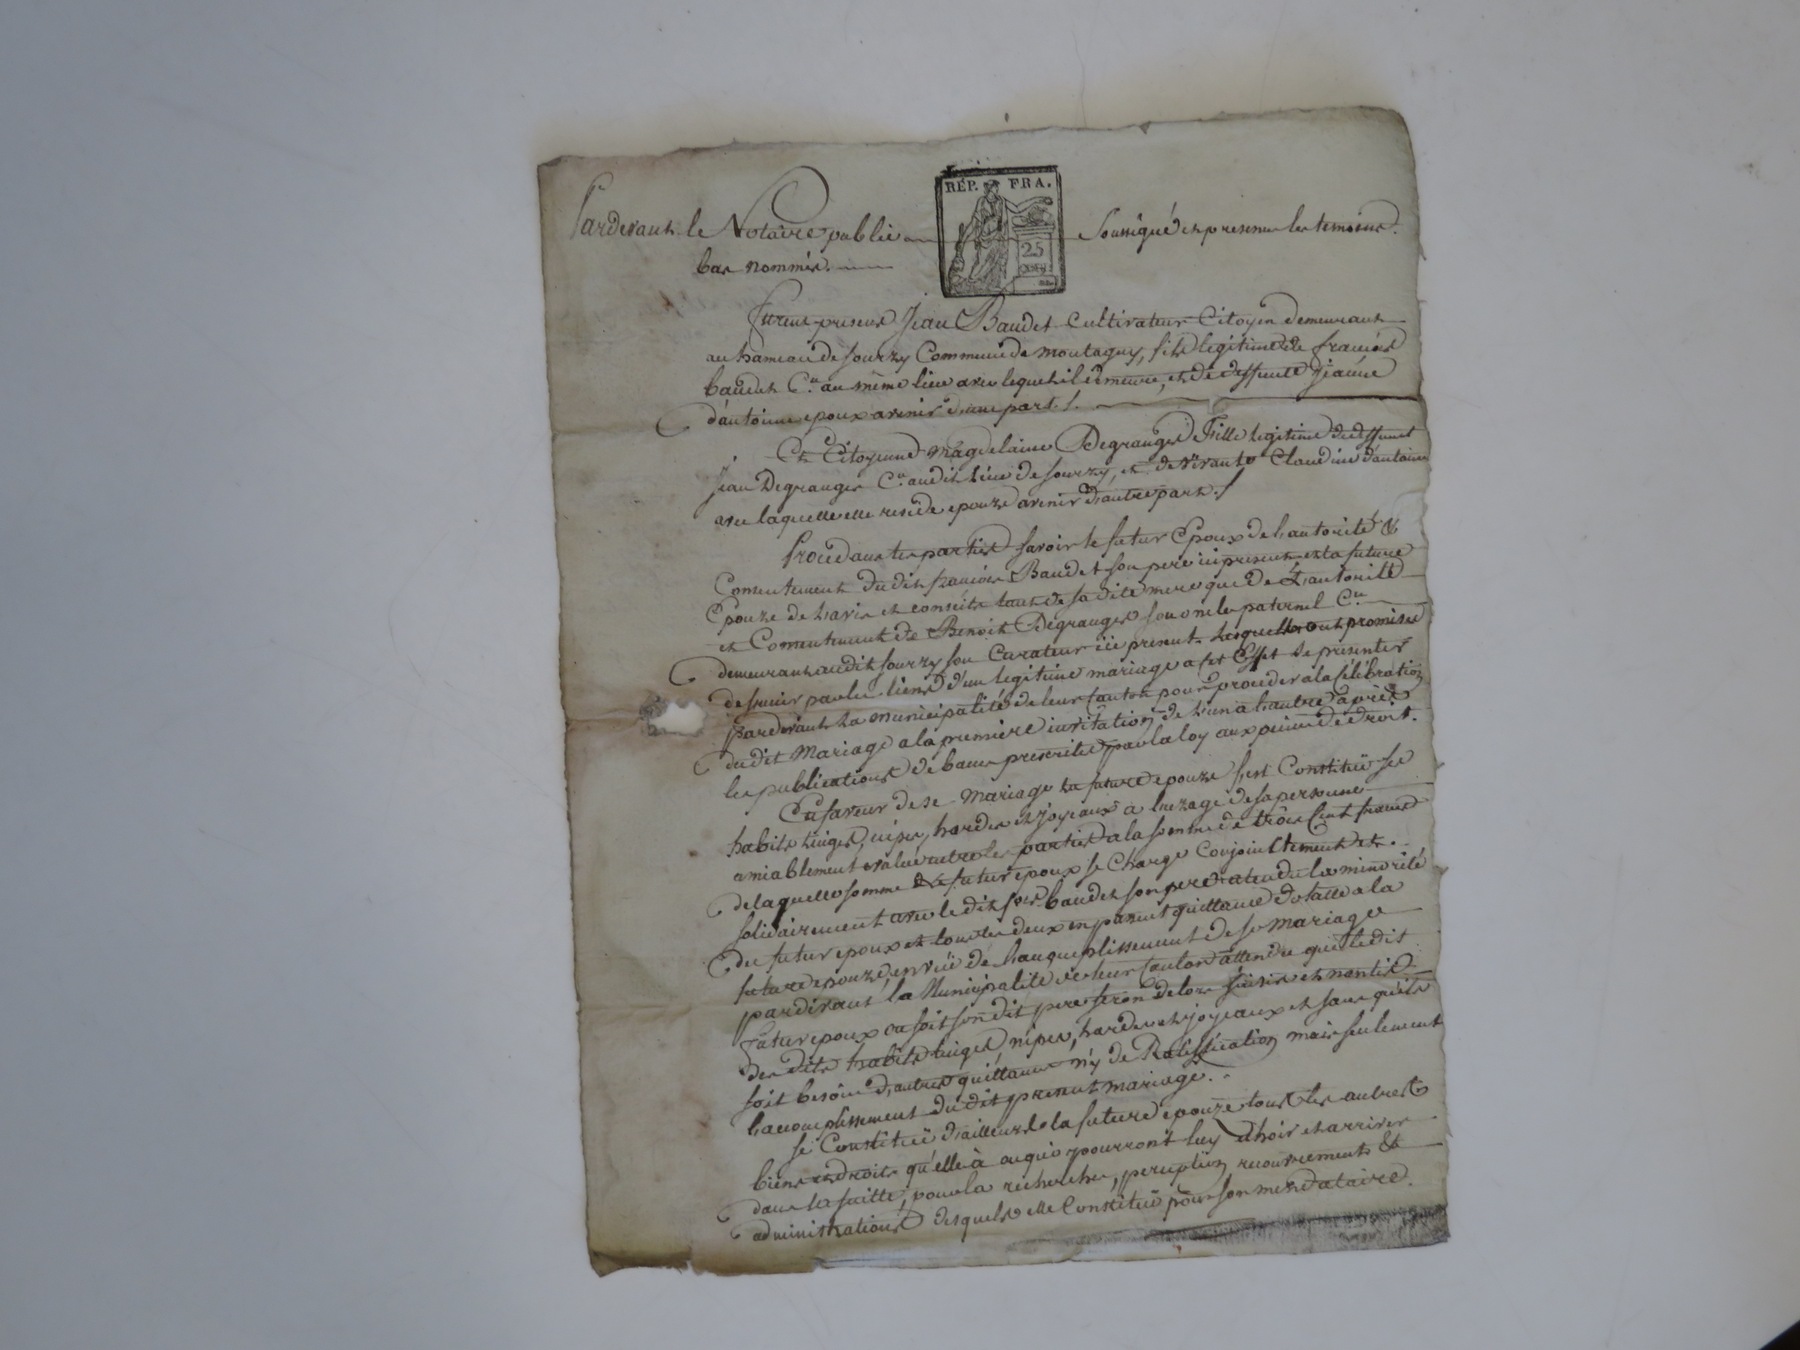 RÉP. FRA.
25
Pardevant le Notaire public soussigné et presence les temoins
bas nommés.
Furent presens Jean Baudet Cultivateur Citoyen demeurant
au hameau de sourzy Commune de montagny, fils légitime de francois
baudet C.en au même lieu avec lequel il demeure, et de deffunte Jeanne
d'antoine epoux avenir d'une part /.
Et Citoyenne Magdelaine Degranges Fille legitime de deffunt
Jean Degranges C.en audit lieu de sourzy, et de vivante Claudine d'antoine
avec laquelle elle reside epouze avenir d'autre part /
Procedant les parties savoir le futur Epoux de l'autorité &
Consentement du dit francois Baudet son pere ici present et la future
Epouze de l'avis et conseils tant de sa dite mere que de L'autorité
et Consentement de Benoit Degranges son oncle paternel C.en
demeurant audit sourzy son Curateur ici present. Lesquelles ont promises
de s'unir par les liens d'un legitime mariage a set Effet de présenter
pardevant La municipalité de leur Canton pour proceder a la Célébration
du dit Mariage a la première invitation de L'un a L'autre après
les publications de bans prescrites par la loy aux peines de droit.
En faveur de se Mariage La future epouze s'est Constituë ses
habits linges, nipes, hardes et joyeaux à L'uzage de sa personne
amiablement evalué entre les parties a la somme de trois Cent francs
de laquelle somme le futur epoux se Charge Conjoinctement et
solidairement avec le dit fois baudet son pere atendu la minorité
du futur epoux et tous les deux en passent quittance dotalle a la
future epouze, en vuë de L'acquplissement de se mariage
pardevant la Municipalité de leur Canton attendu que le dit
Futur epoux ou soit son dit pere seron de lors saisis et nantis
des dits habits linges nipes, hardes et joyeaux et sans qu'ils
soit besoin d'autres quittance n'y de Ratiffication mais seulement
L'acomplissement du dit present mariage.
se Constituë d'ailleurs la future epouze tous les autres
biens et droits qu'elle à ou qui pourront luy échoir et arriver
dans la suitte, pour la récherche, perception recouvrement &
administrations desquels elle Constituë pour son mendataire